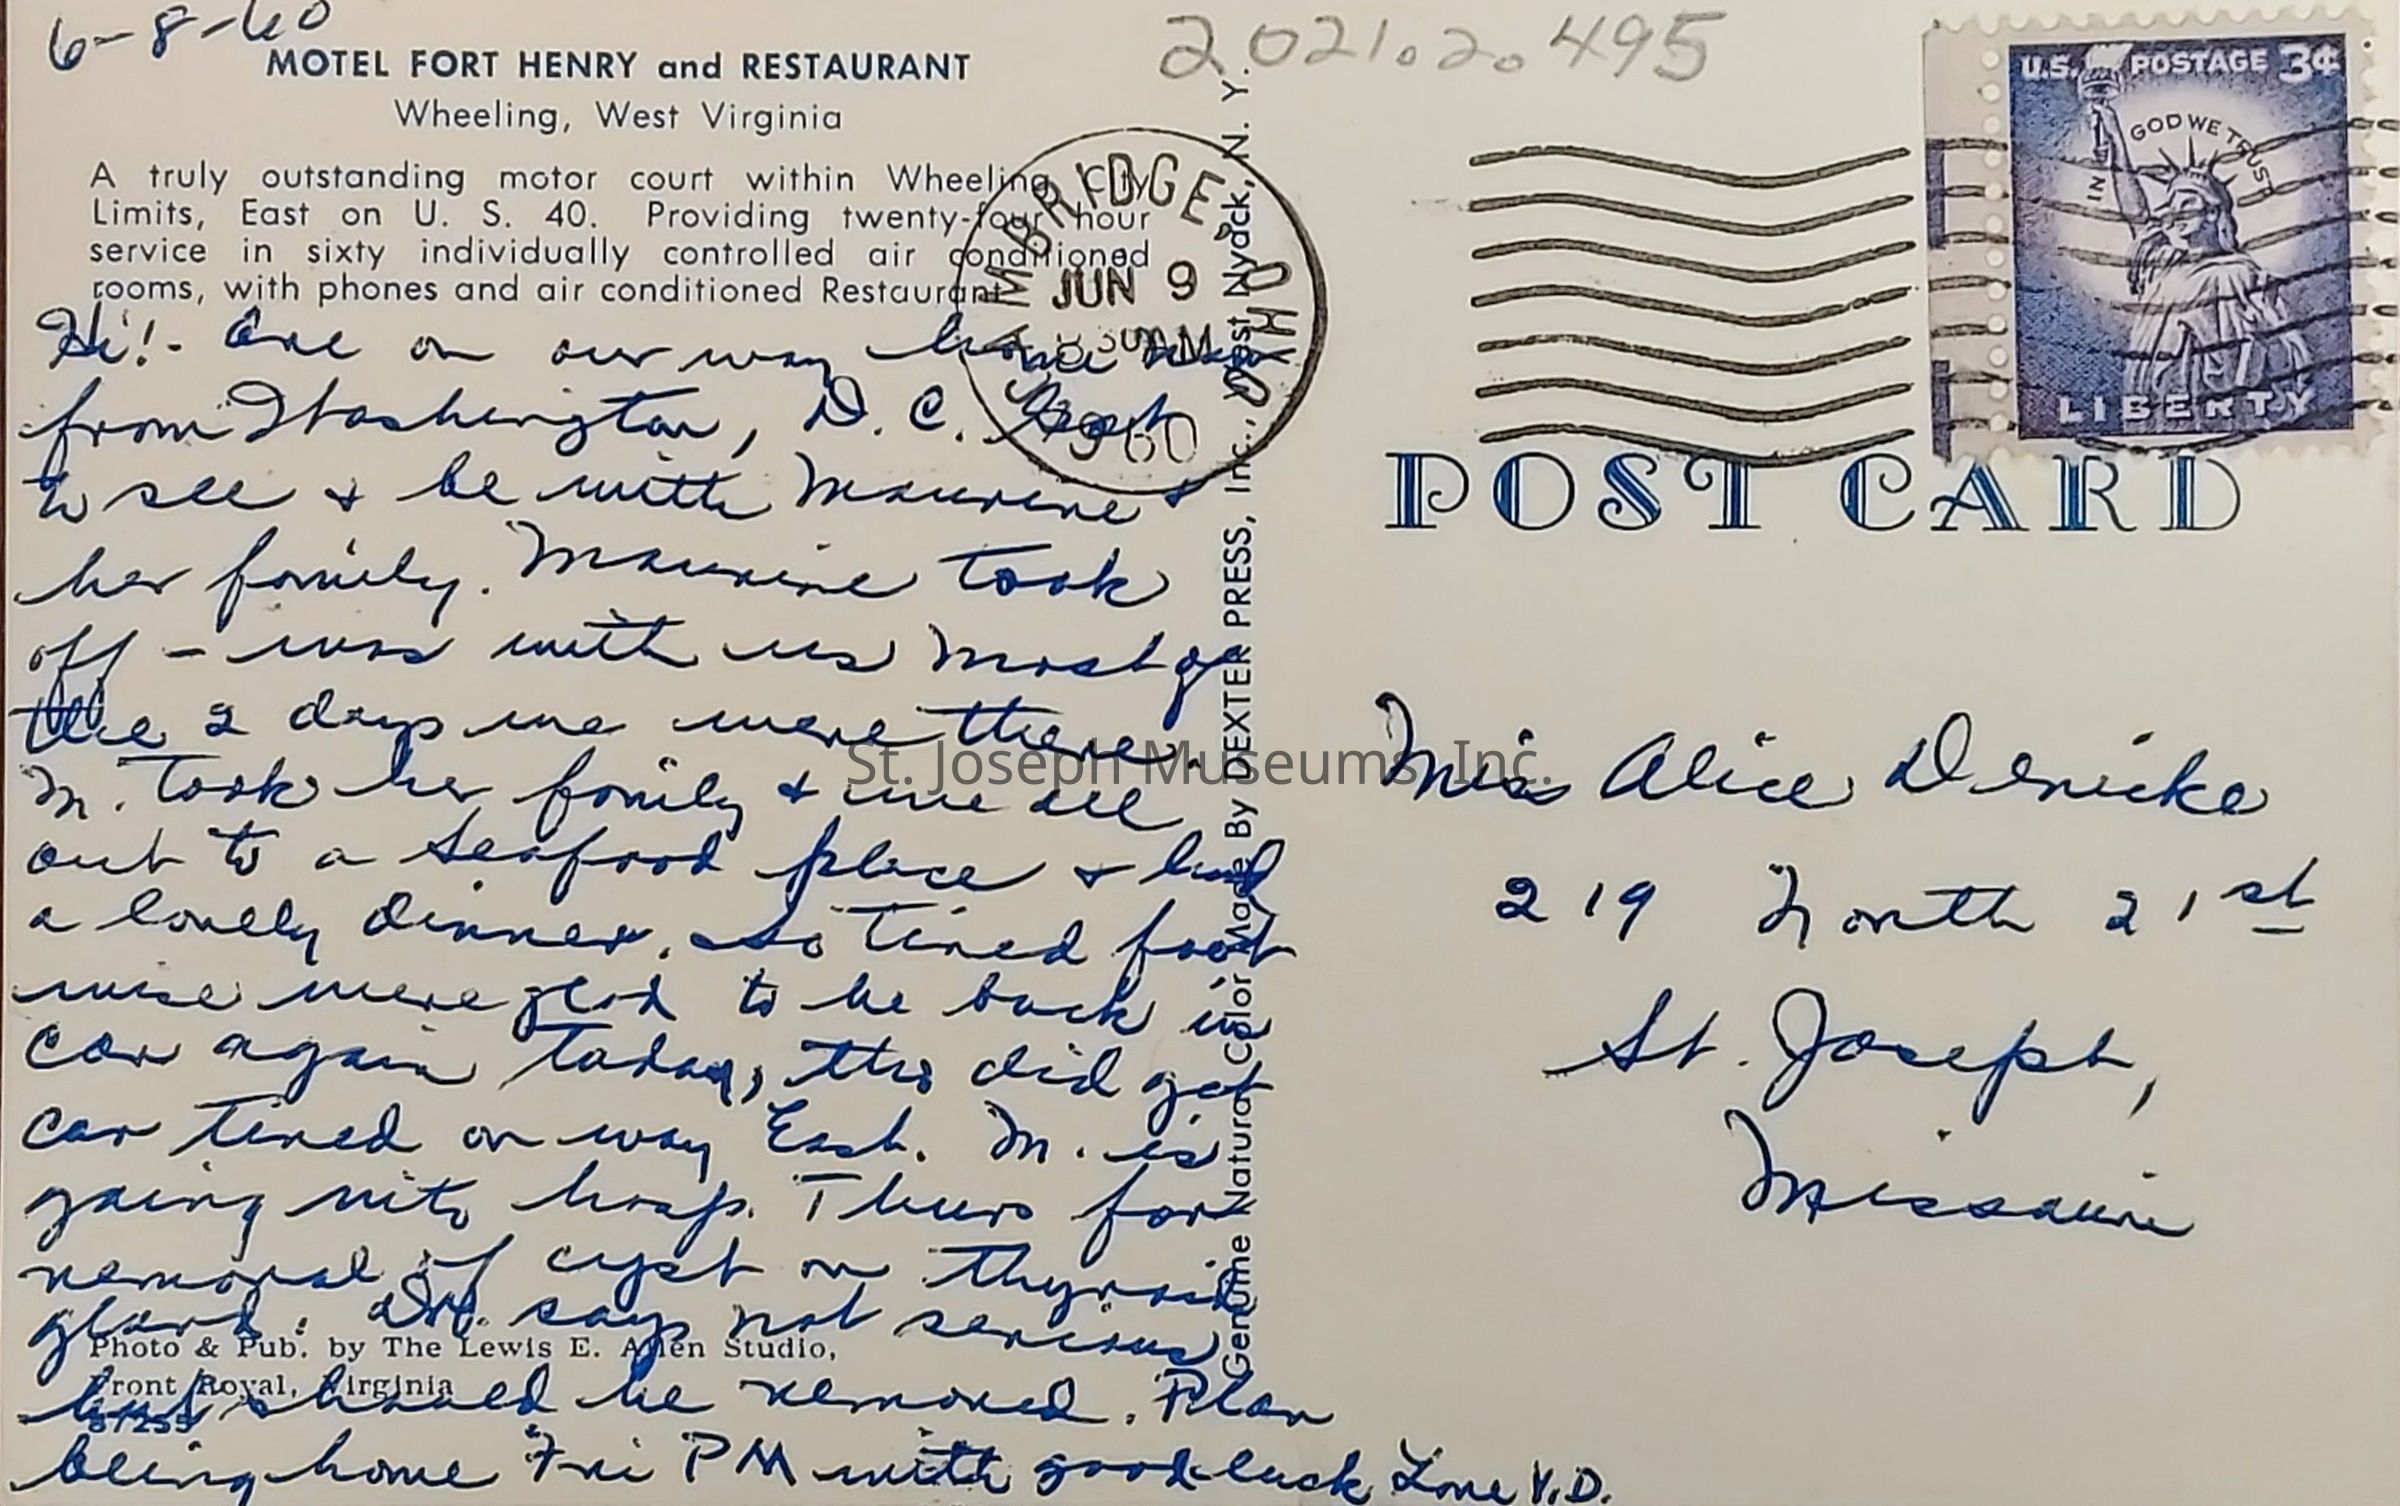 6-8-60
MOTEL FORT HENRY and RESTAURANT
Wheeling, West Virginia
A truly outstanding motor court within Wheeling City
Limits, East on U. S. 40. Providing twenty-four hour
service in sixty individually controlled air conditioned
rooms, with phones and air conditioned Restaurant.
Hi! - Are on our way home now
from Washington, D.C. Great
to see & be with Maurine &
her family. Maurine took
off - was with us most of
the 2 days we were there.
M. took her family & we all
out to a seafood place & had
a lovely dinner. So tired foot
wise were glad to be back in
car again today, tho did get
car tired on way East. M. is
going into hosp. Thurs for
removal of cyst on thyroid
gland. Dr. says not serious
but should be removed. Plan
being home Fri PM with good luck Love V.D.
Photo & Pub. by The Lewis E. Allen Studio,
Front Royal, Virginia
37255
Genuine Natural Color Made By DEXTER PRESS, Inc., West Nyack, N. Y.
2021.2.495
CAMBRIDGE OHIO
JUN 9
AM
1960
U.S. POSTAGE 3¢
IN GOD WE TRUST
LIBERTY
POST CARD
Miss Alice Denicke
219 North 21st
St. Joseph,
Missouri
St. Joseph Museums, Inc.